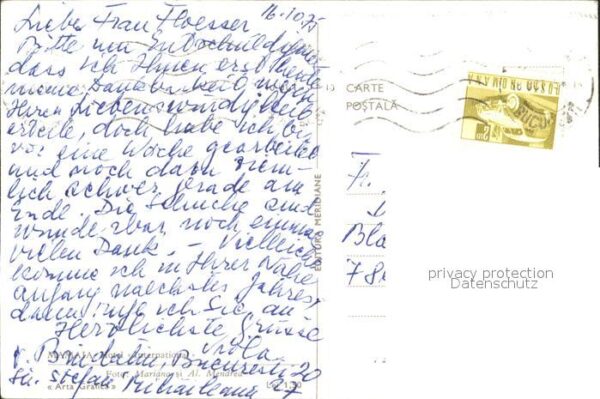 16.10.75
Liebe Frau Floesser
Bitte um Entschuldigung
dass ich Ihnen erst heute
meine Dankbarkeit
Ihrer Liebenswürdigkeit
erteile, doch habe ich bis
vor eine Woche gearbeitet
und noch dazu ziem-
lich schwer, grade am
Ende. Die Schuhe sind
wunderbar noch einmal
vielen Dank. - Vielleicht
komme ich in Ihrer Nähe
anfang naechster Jahres
dann rufe ich Sie an.
Herzlichste Grüsse
MAMAIA. Hotel «International»
Foto: Mariana și Al. Mendrea
Bucuresti 20
Str. Stefan Mihaileanu 27
« Arta Grafică »
Lei 1,50
EDITURA MERIDIANE
CARTE
POȘTALĂ
Fr.
Bla
78
privacy protection
Datenschutz